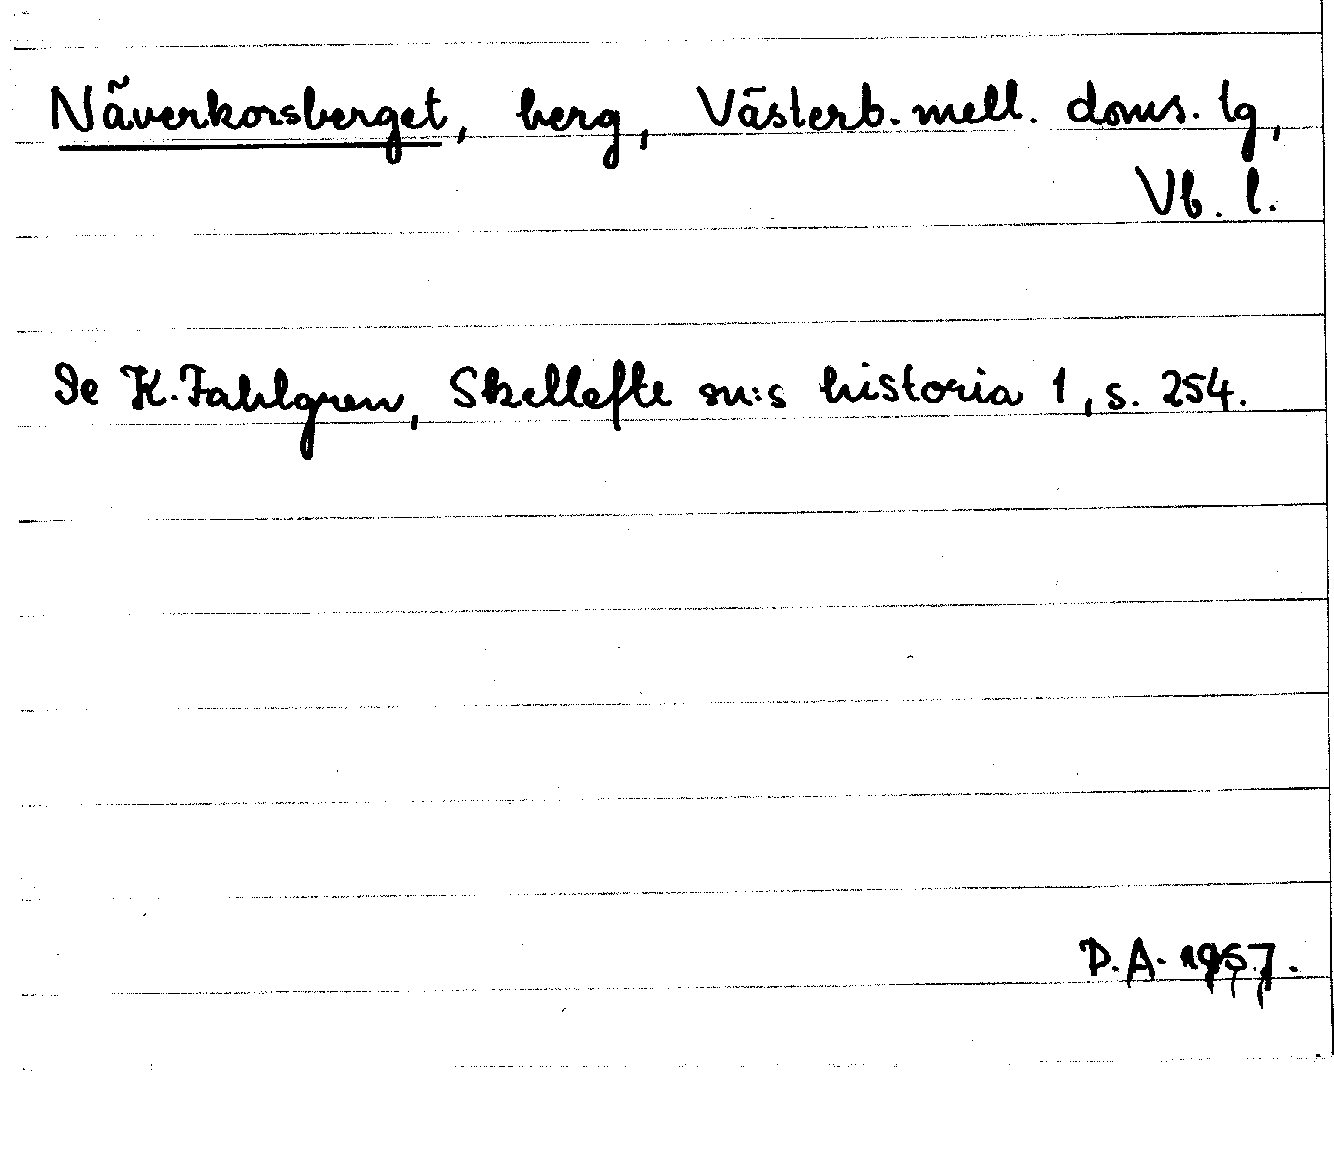 Näverkorsberget, berg, Västerb. mell. doms. lg,
Vb. l.
Se K. Fahlgren, Skellefte sn:s historia 1, s. 254.
D. A. 1957.